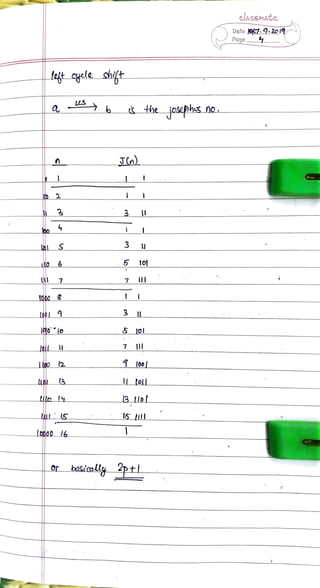 classmate
Date
Page 4
left cycle shift
a LCS → b is the josephus no.
n J(n)
1 1 1
10 2 1 1
11 3 3 11
100 4 1 1
101 5 3 11
110 6 5 101
111 7 7 111
1000 8 1 1
1001 9 3 11
1010 10 5 101
1011 11 7 111
1100 12 9 1001
1101 13 11 1011
1110 14 13 1101
1111 15 15 1111
10000 16 1
or basically 2p+1